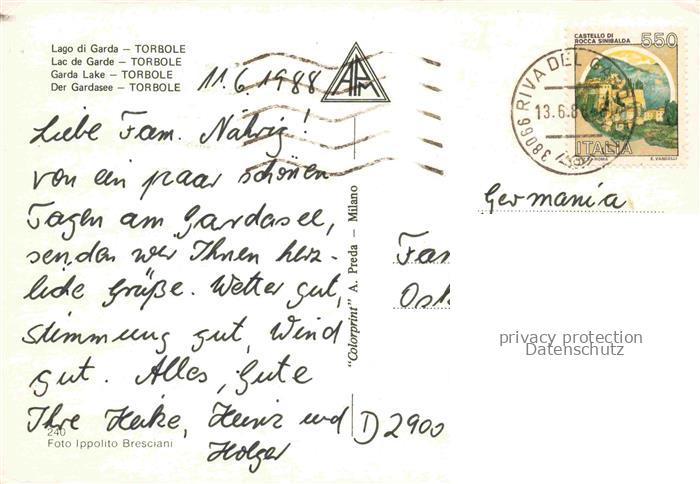 Lago di Garda – TORBOLE
Lac de Garde – TORBOLE
Garda Lake – TORBOLE
Der Gardasee – TORBOLE
11.6.1988
Liebe Fam. Nährig!
von ein paar schönen
Tagen am Gardasee,
senden wir Ihnen herz-
liche Grüße. Wetter gut,
Stimmung gut, Wind
gut. Alles Gute
Ihre Heike, Heinz und
Holger
240
Foto Ippolito Bresciani
"Colorprint" A. Preda – Milano
CASTELLO DI
ROCCA SINIBALDA
550
ITALIA
E. VANGELLI
38066 RIVA DEL
13.6.8
Germania
Fam
Ost
D 2900
privacy protection
Datenschutz